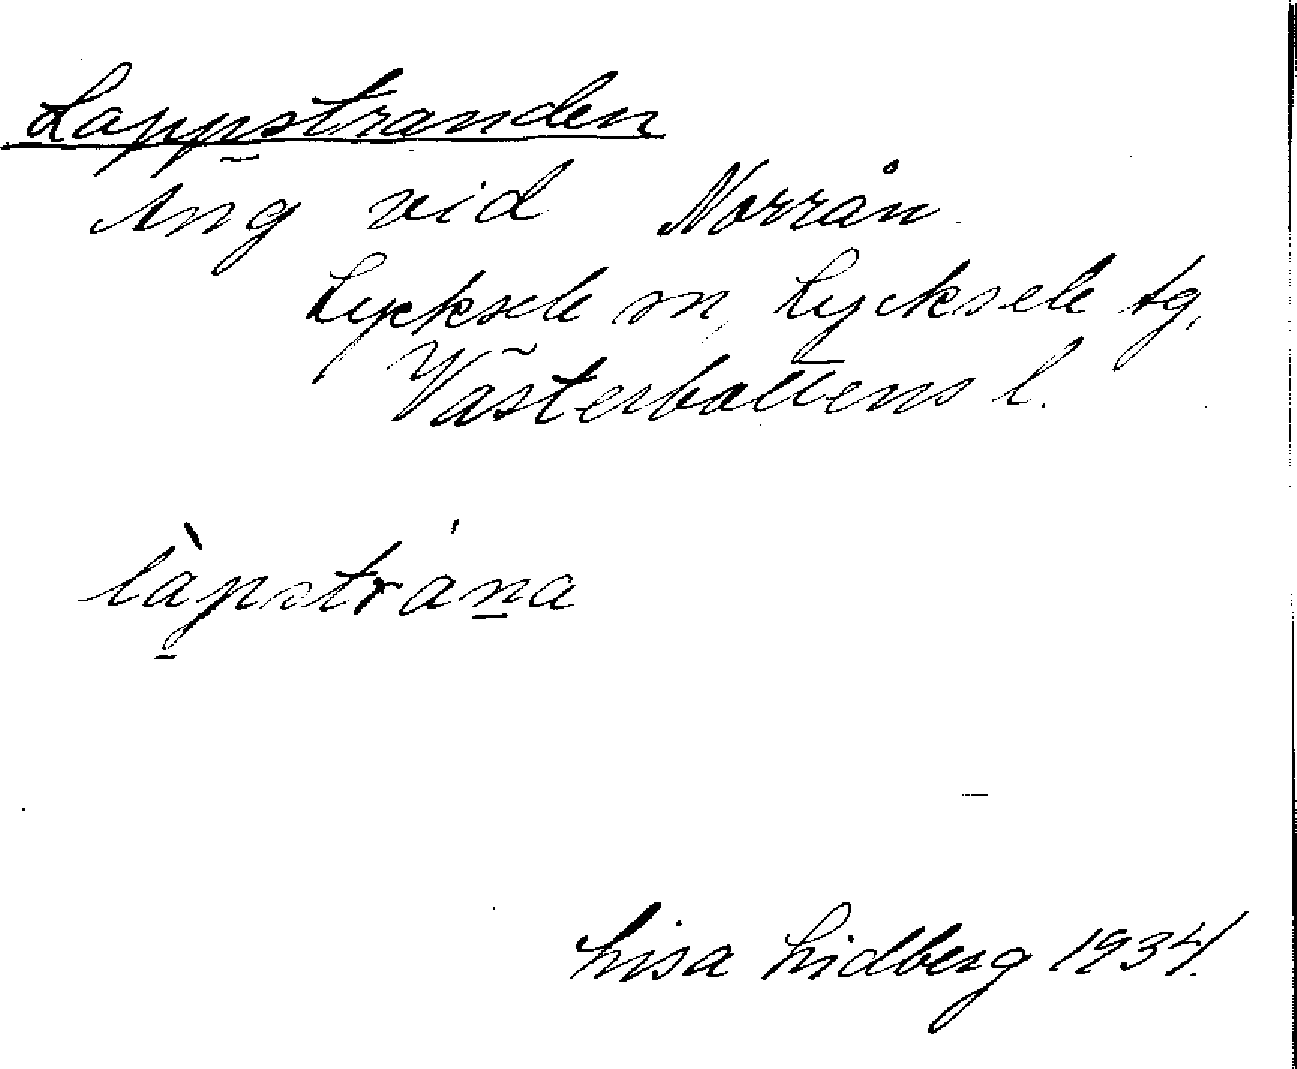 Lappstranden
Äng vid Norrån
Lycksele sn, Lycksele tg,
Västerbottens l.
làpstrána
Lisa Lidberg 1934.